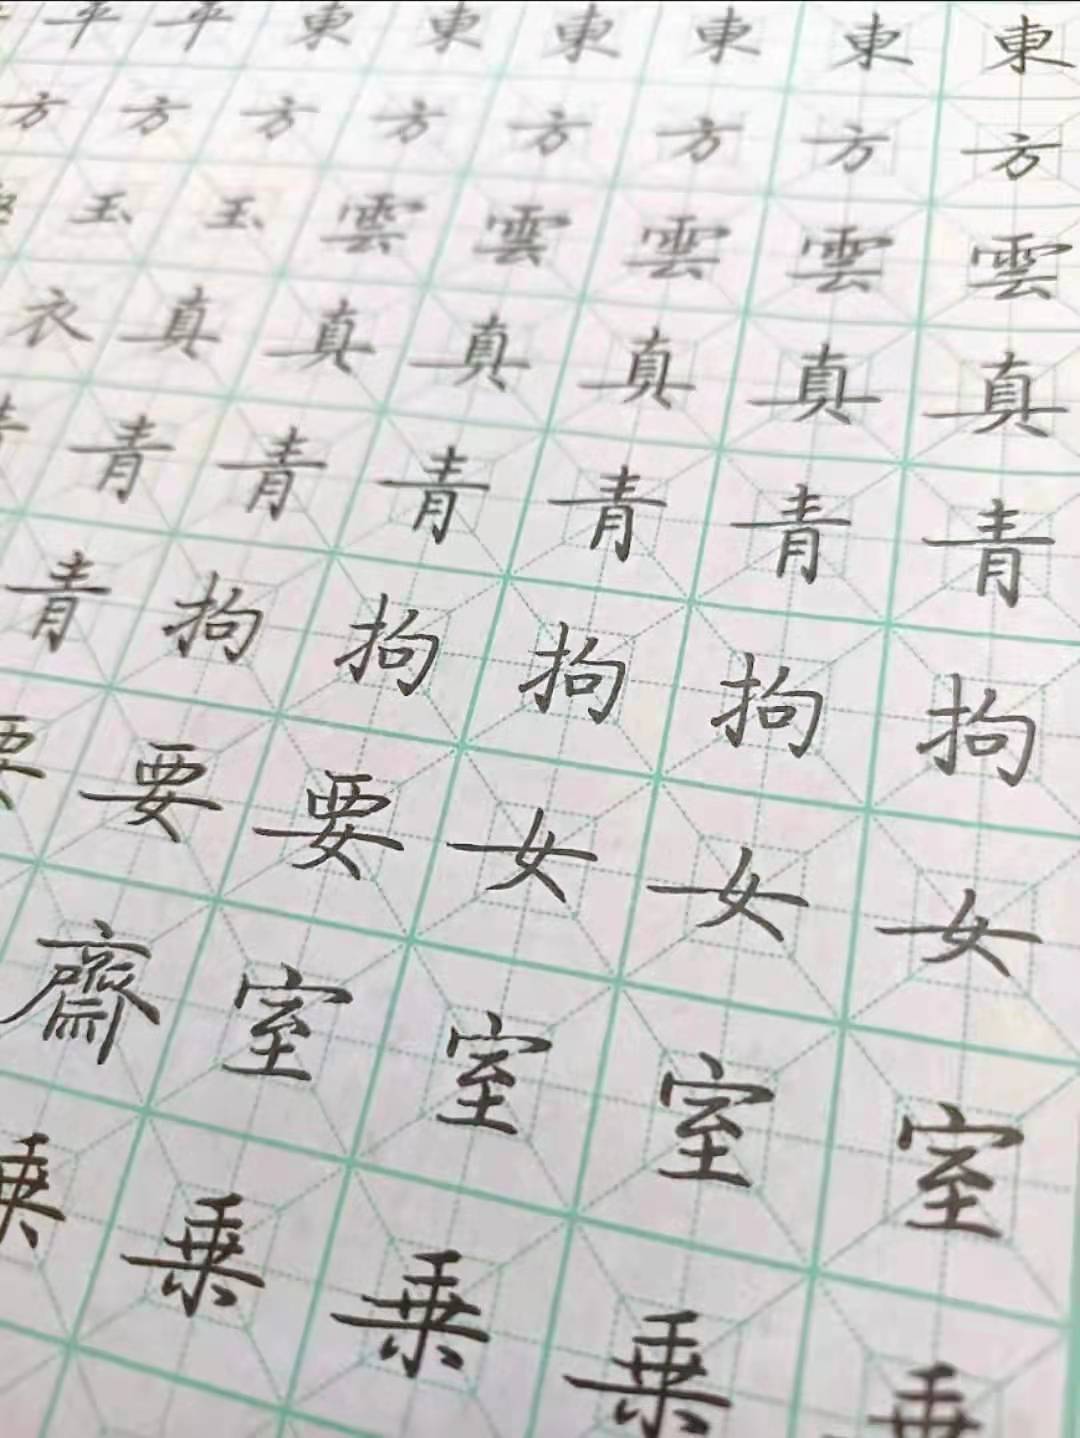 平平東東東東東東
方方方方方方方方
玉玉雲雲雲雲雲
衣真真真真真真
青青青青青青
青拘拘拘拘拘
要要要女女女
齋室室室室
乗乗乗乗